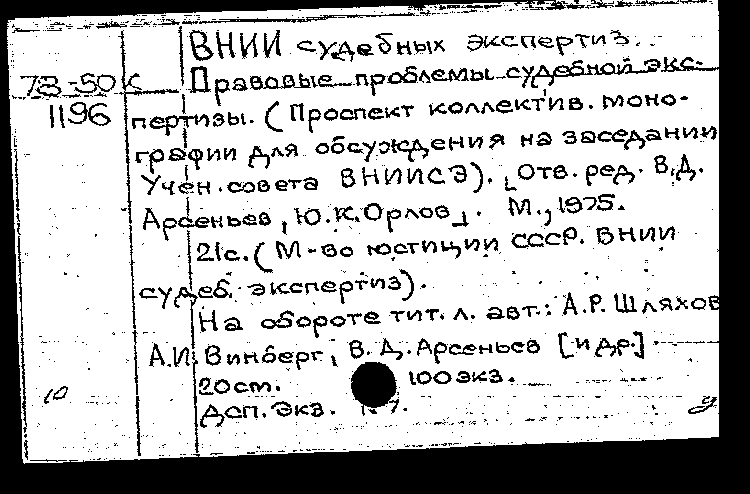 ВНИИ судебных экспертиз.
78-50к Правовые проблемы судебной экс-
1196 пертизы. (Проспект коллектив. моно-
графии для обсуждения на заседании
Учен. совета ВНИИСЭ). [Отв. ред. В.Д.
Арсеньев, Ю.К. Орлов]. М., 1975.
21с. (М-во юстиции СССР. ВНИИ
судеб. экспертиз).
На обороте тит. л. авт.: А.Р. Шляхов
А.И. Винберг, В.Д. Арсеньев [и др.]
10 20 см. 100 экз.
Дсп. Экз.